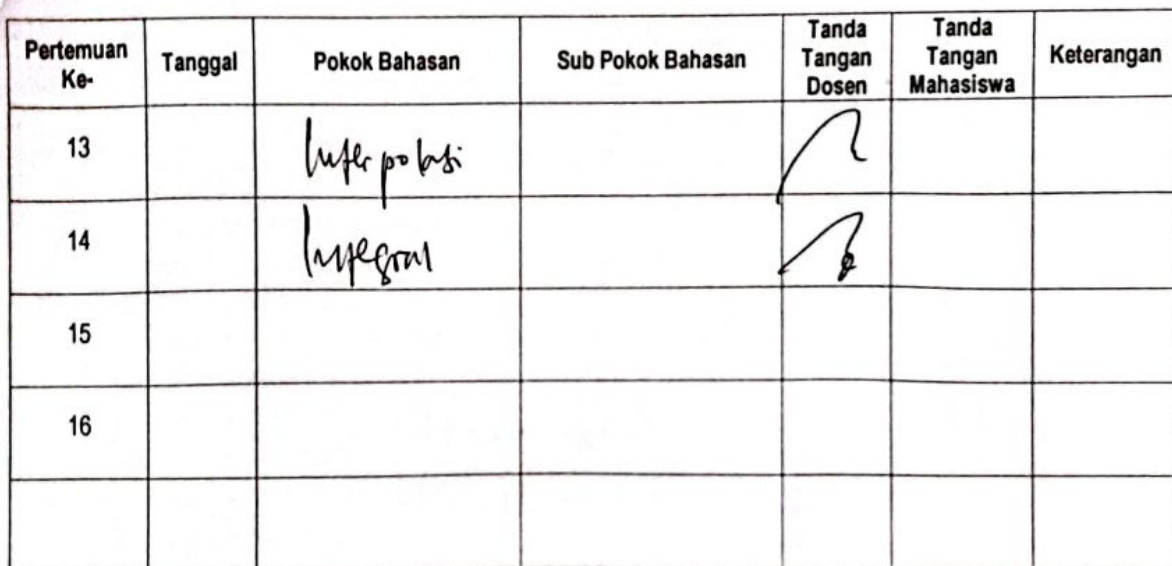 Pertemuan Ke- Tanggal Pokok Bahasan Sub Pokok Bahasan Tanda Tangan Dosen Tanda Tangan Mahasiswa Keterangan
13 Interpolasi
14 Integral
15
16